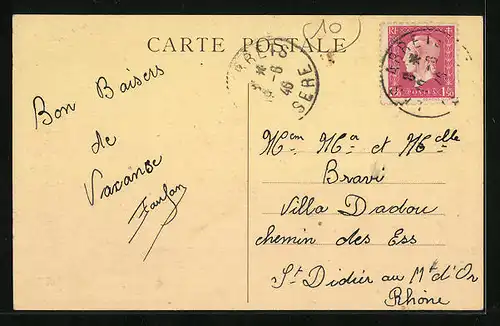 10
CARTE POSTALE
8-6
46
ISERE
RF
POSTES
Bon Baisers
de
Vaxanse
Mem Ma et Melle
Bravi
Villa Dadou
chemin des Ess
St Didier au Mt d'Or
Rhône